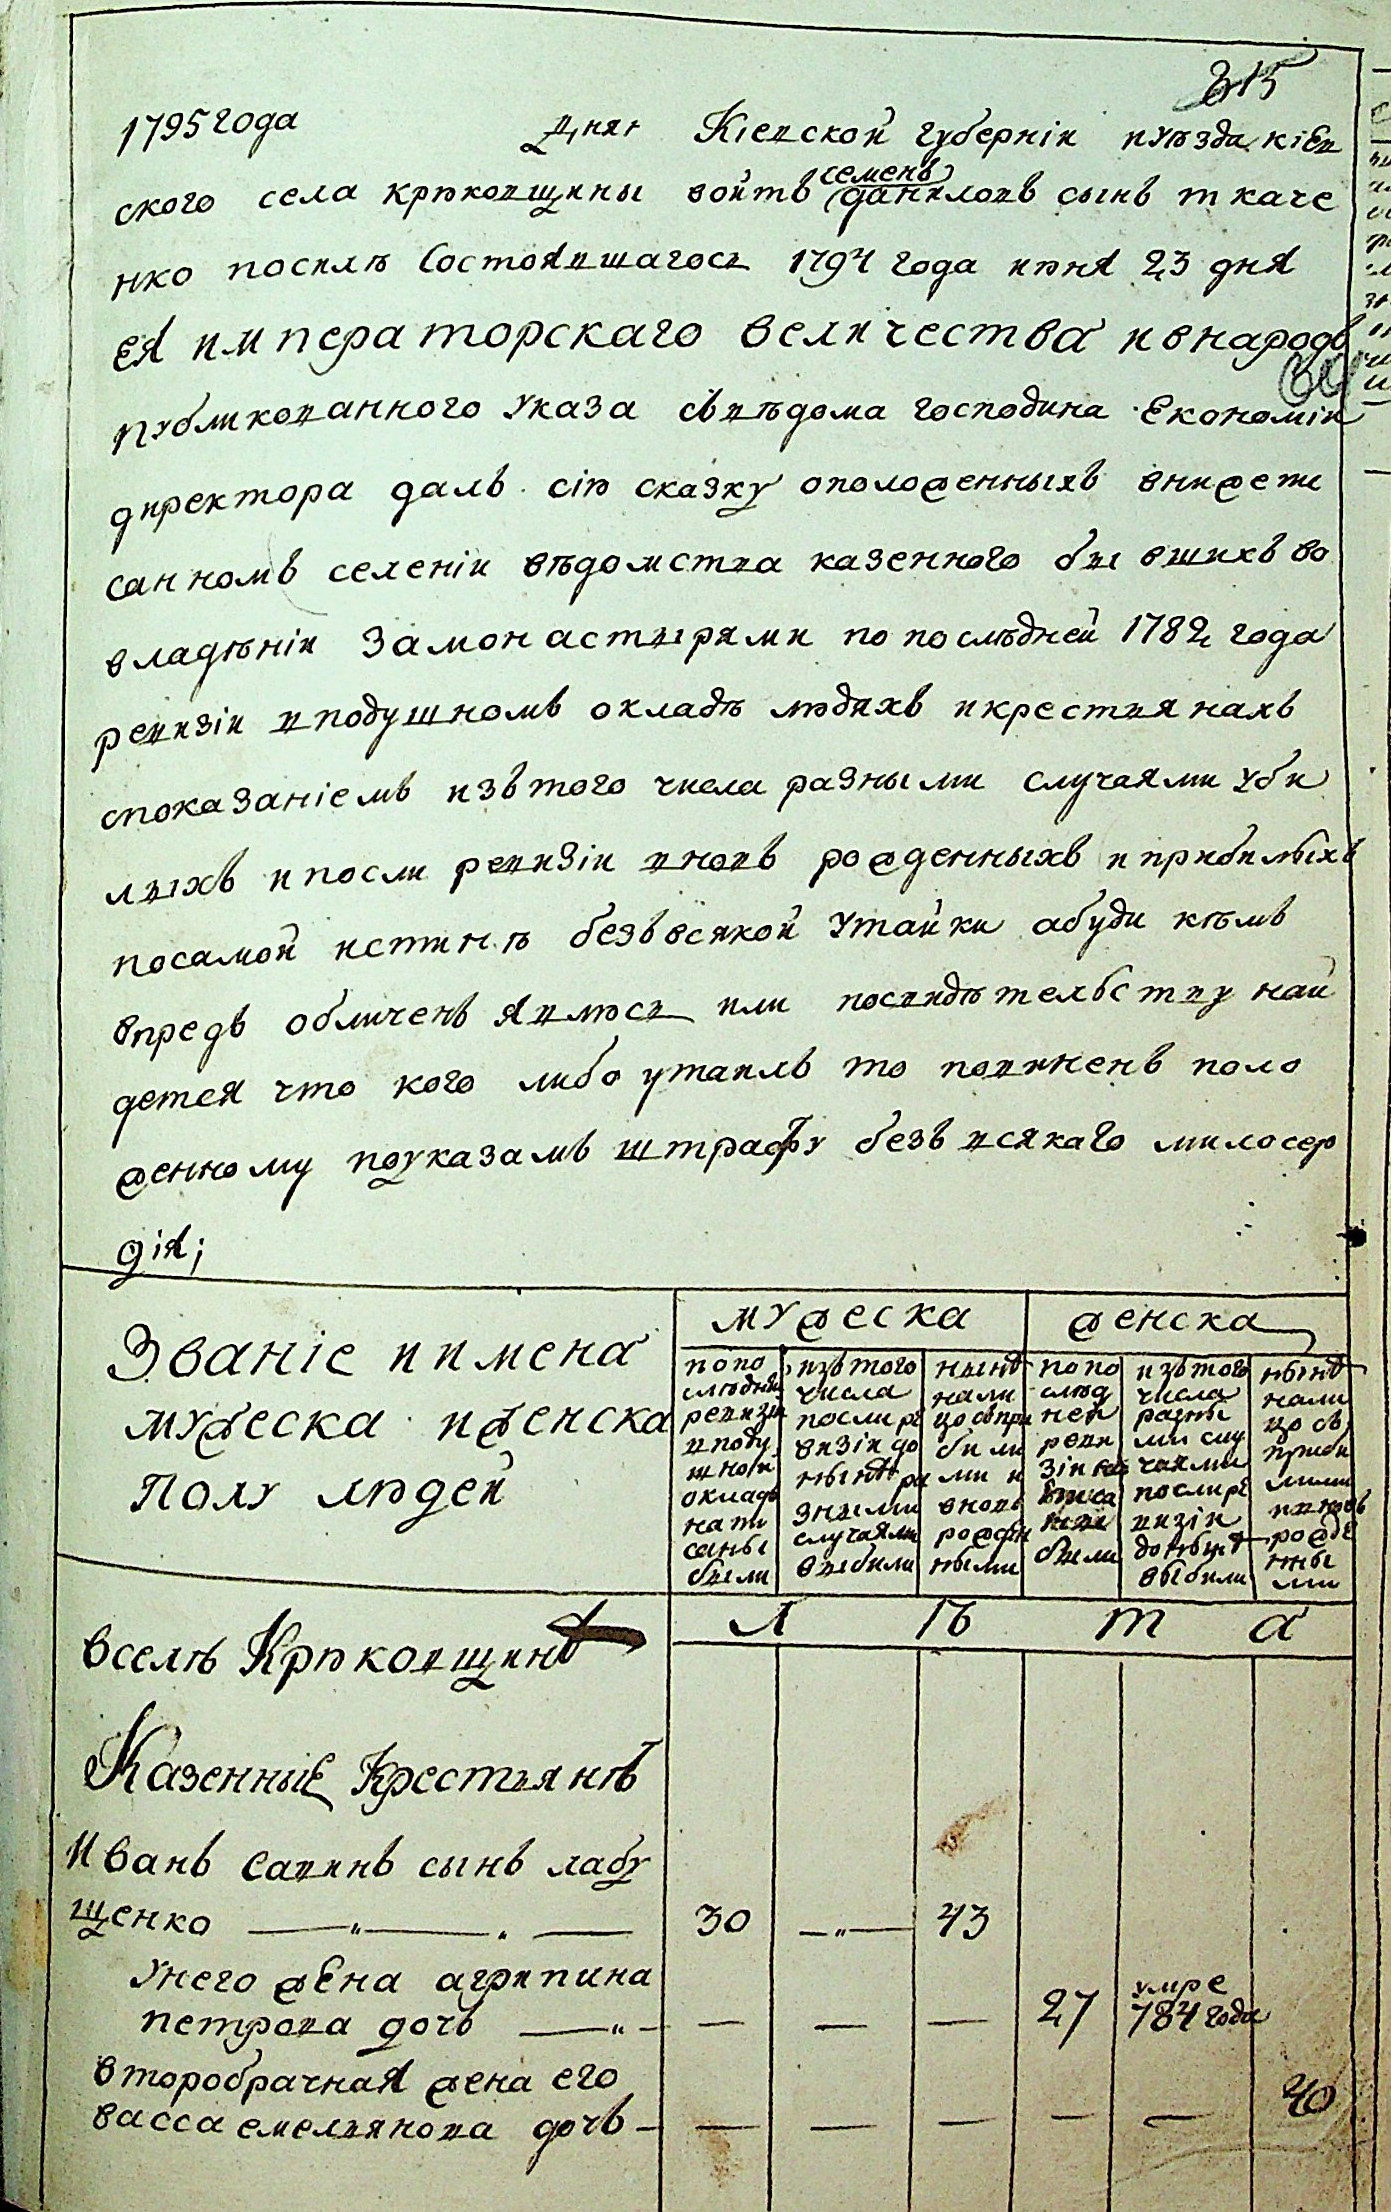 315
1795 года дня Кіевской губерніи и уѣзда кіев
семенъ
ского села крюковщины войтъ даниловъ сынъ ткаче
нко посилѣ состоявшагось 1794 года июня 23 дня
ея императорскаго величества и внародъ
публикованного указа свѣдома господина економіи
директора далъ сію сказку оположенныхъ внижепи
санномъ селеніи вѣдомства казенного бывшихъ во
владѣніи замонастырями по послѣдней 1782 года
ревизіи вподушномъ окладѣ людяхъ икрестянахъ
споказаніемъ изътого числа разными случаями уби
лыхъ ипосли ревизіи вновъ рожденныхъ иприбилыхъ
посамой истиннѣ безвсякой утайки абуди кѣмъ
впредъ обличенъ явлюсь или посвидѣтельству най
детея что кого либо утаилъ то повиненъ поло
женному поуказамъ штрафу безъ всякаго милосер
дія;
Званіе иимена
мужеска иженска
полу людей
мужеска женска
попо
слѣдней
ревизіи
вподу
шномъ
окладѣ
напи
саны
были
изътого
числа
послире
визіи до
нынѣ ра
зными
случаями
выбили
нынѣ
нали
цо съпри
били
ми и
вновъ
рожден
ными
попо
слѣд
ней
реви
зіи
были
изътого
числа
разны
ми слу
чаями
послире
визіи
донынѣ
выбили
нынѣ
нали
цо съ
приби
лими
ивновъ
рожде
нны
ми
л ѣ т а
вселѣ Крюковщинѣ
Казенные Крестьянѣ
Иванъ савинъ сынъ лабу
щенко — „ — „ — 30 — „ — 43
унего жена агрипина умре
петрова дочь — „ — — — — 27 784 года
второбрачная жена его
васса емельянова дочъ — — — — — — 40